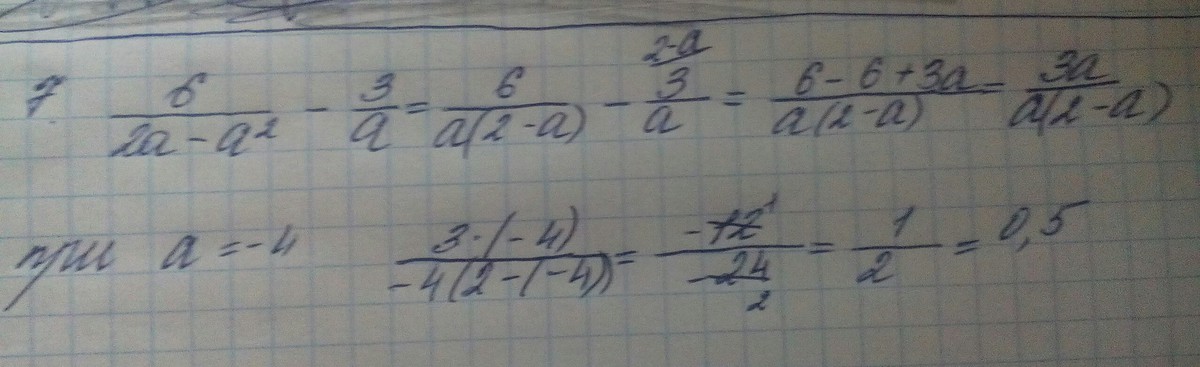 7. 6/(2a-a²) - 3/a = 6/(a(2-a)) - 3/a 2-a = (6-6+3a)/(a(2-a)) = 3a/(a(2-a))
при a=-4 3·(-4)/(-4(2-(-4))) = -12 1/-24 2 = 1/2 = 0,5